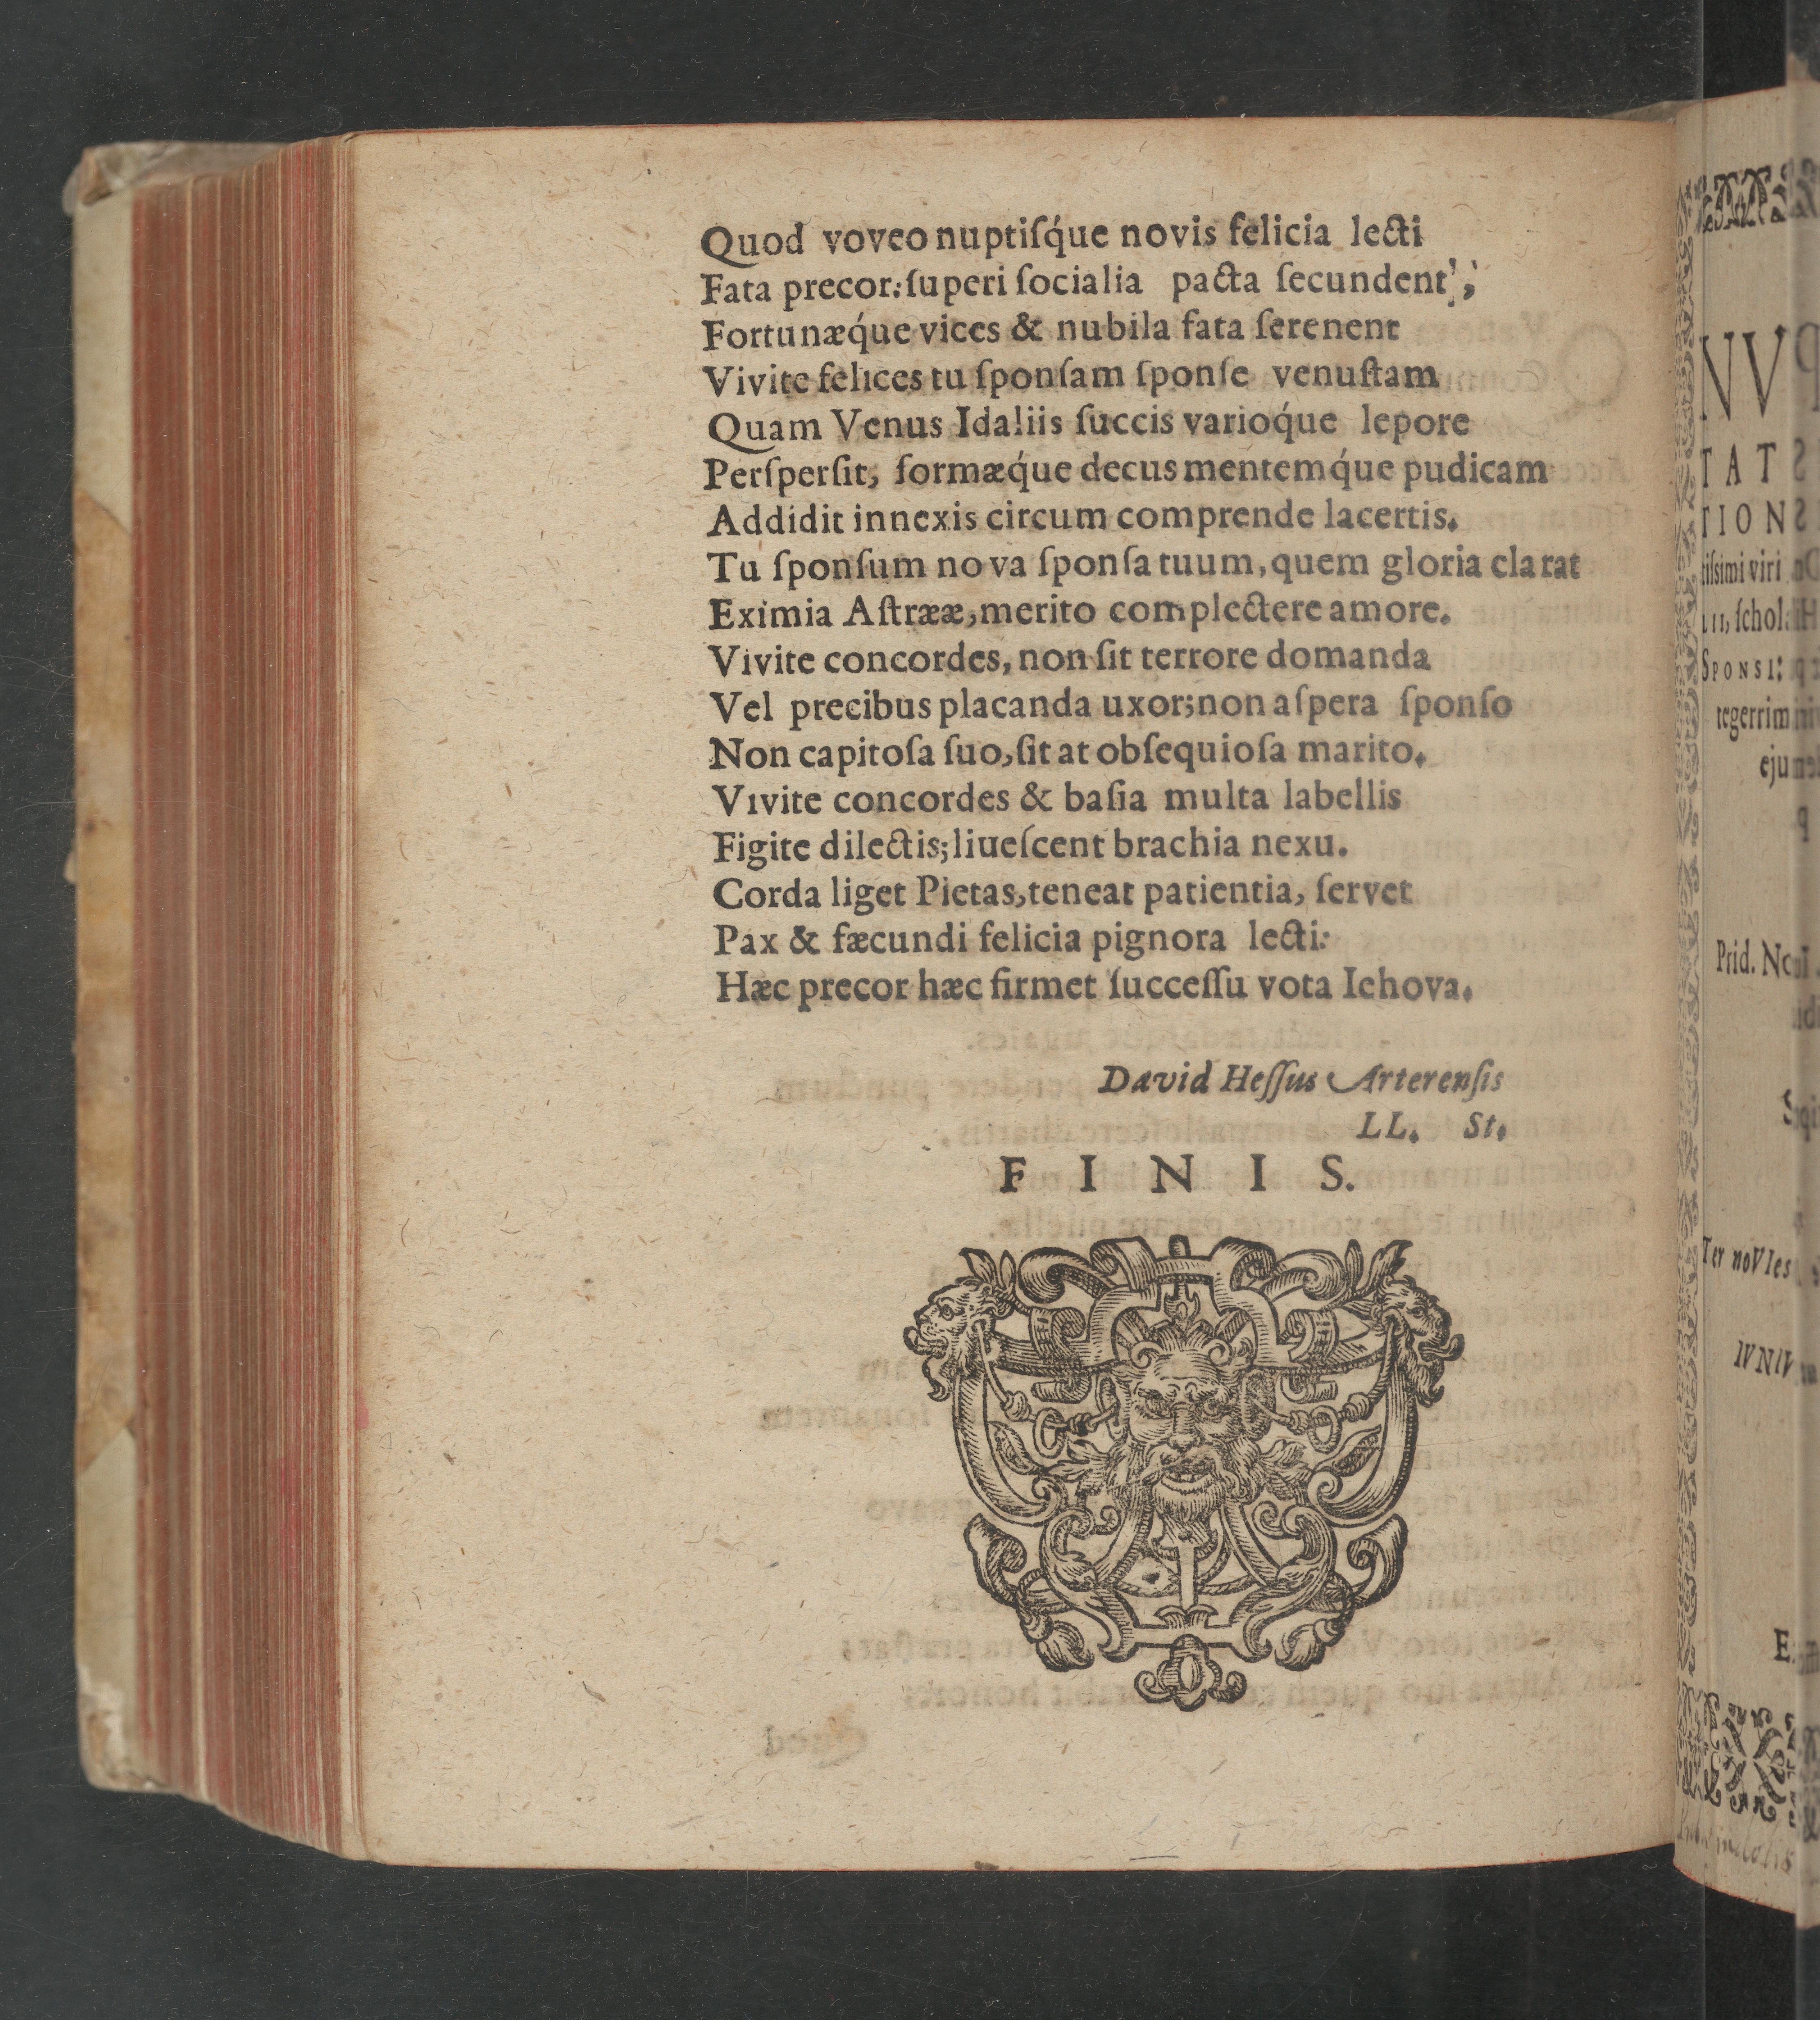 Quod voveo nuptiſq́ue novis felicia lecti
Fata precor: ſuperi ſocialia pacta ſecundent;
Fortunæq́ue vices & nubila fata ſerenent
Vivite felices tu ſponſam ſponſe venuſtam
Quam Venus Idaliis ſuccis varioq́ue lepore
Perſperſit, formæq́ue decus mentemq́ue pudicam
Addidit innexis circum comprende lacertis.
Tu ſponſum nova ſponſa tuum, quem gloria clarat
Eximia Aſtrææ, merito complectere amore.
Vivite concordes, non ſit terrore domanda
Vel precibus placanda uxor; non aſpera ſponſo
Non capitoſa ſuo, ſit at obſequioſa marito.
Vivite concordes & baſia multa labellis
Figite dilectis; liueſcent brachia nexu.
Corda liget Pietas, teneat patientia, ſervet
Pax & fæcundi felicia pignora lecti:
Hæc precor hæc firmet ſucceſſu vota Iehova.
David Heſſus Arterenſis
LL. St.
FINIS.
NV
TAT
TION
iſsimi viri
LII, ſchol.
SPONSI:
tegerrim
eju
q
Prid. No
Ter noVIes
IVNIV
E